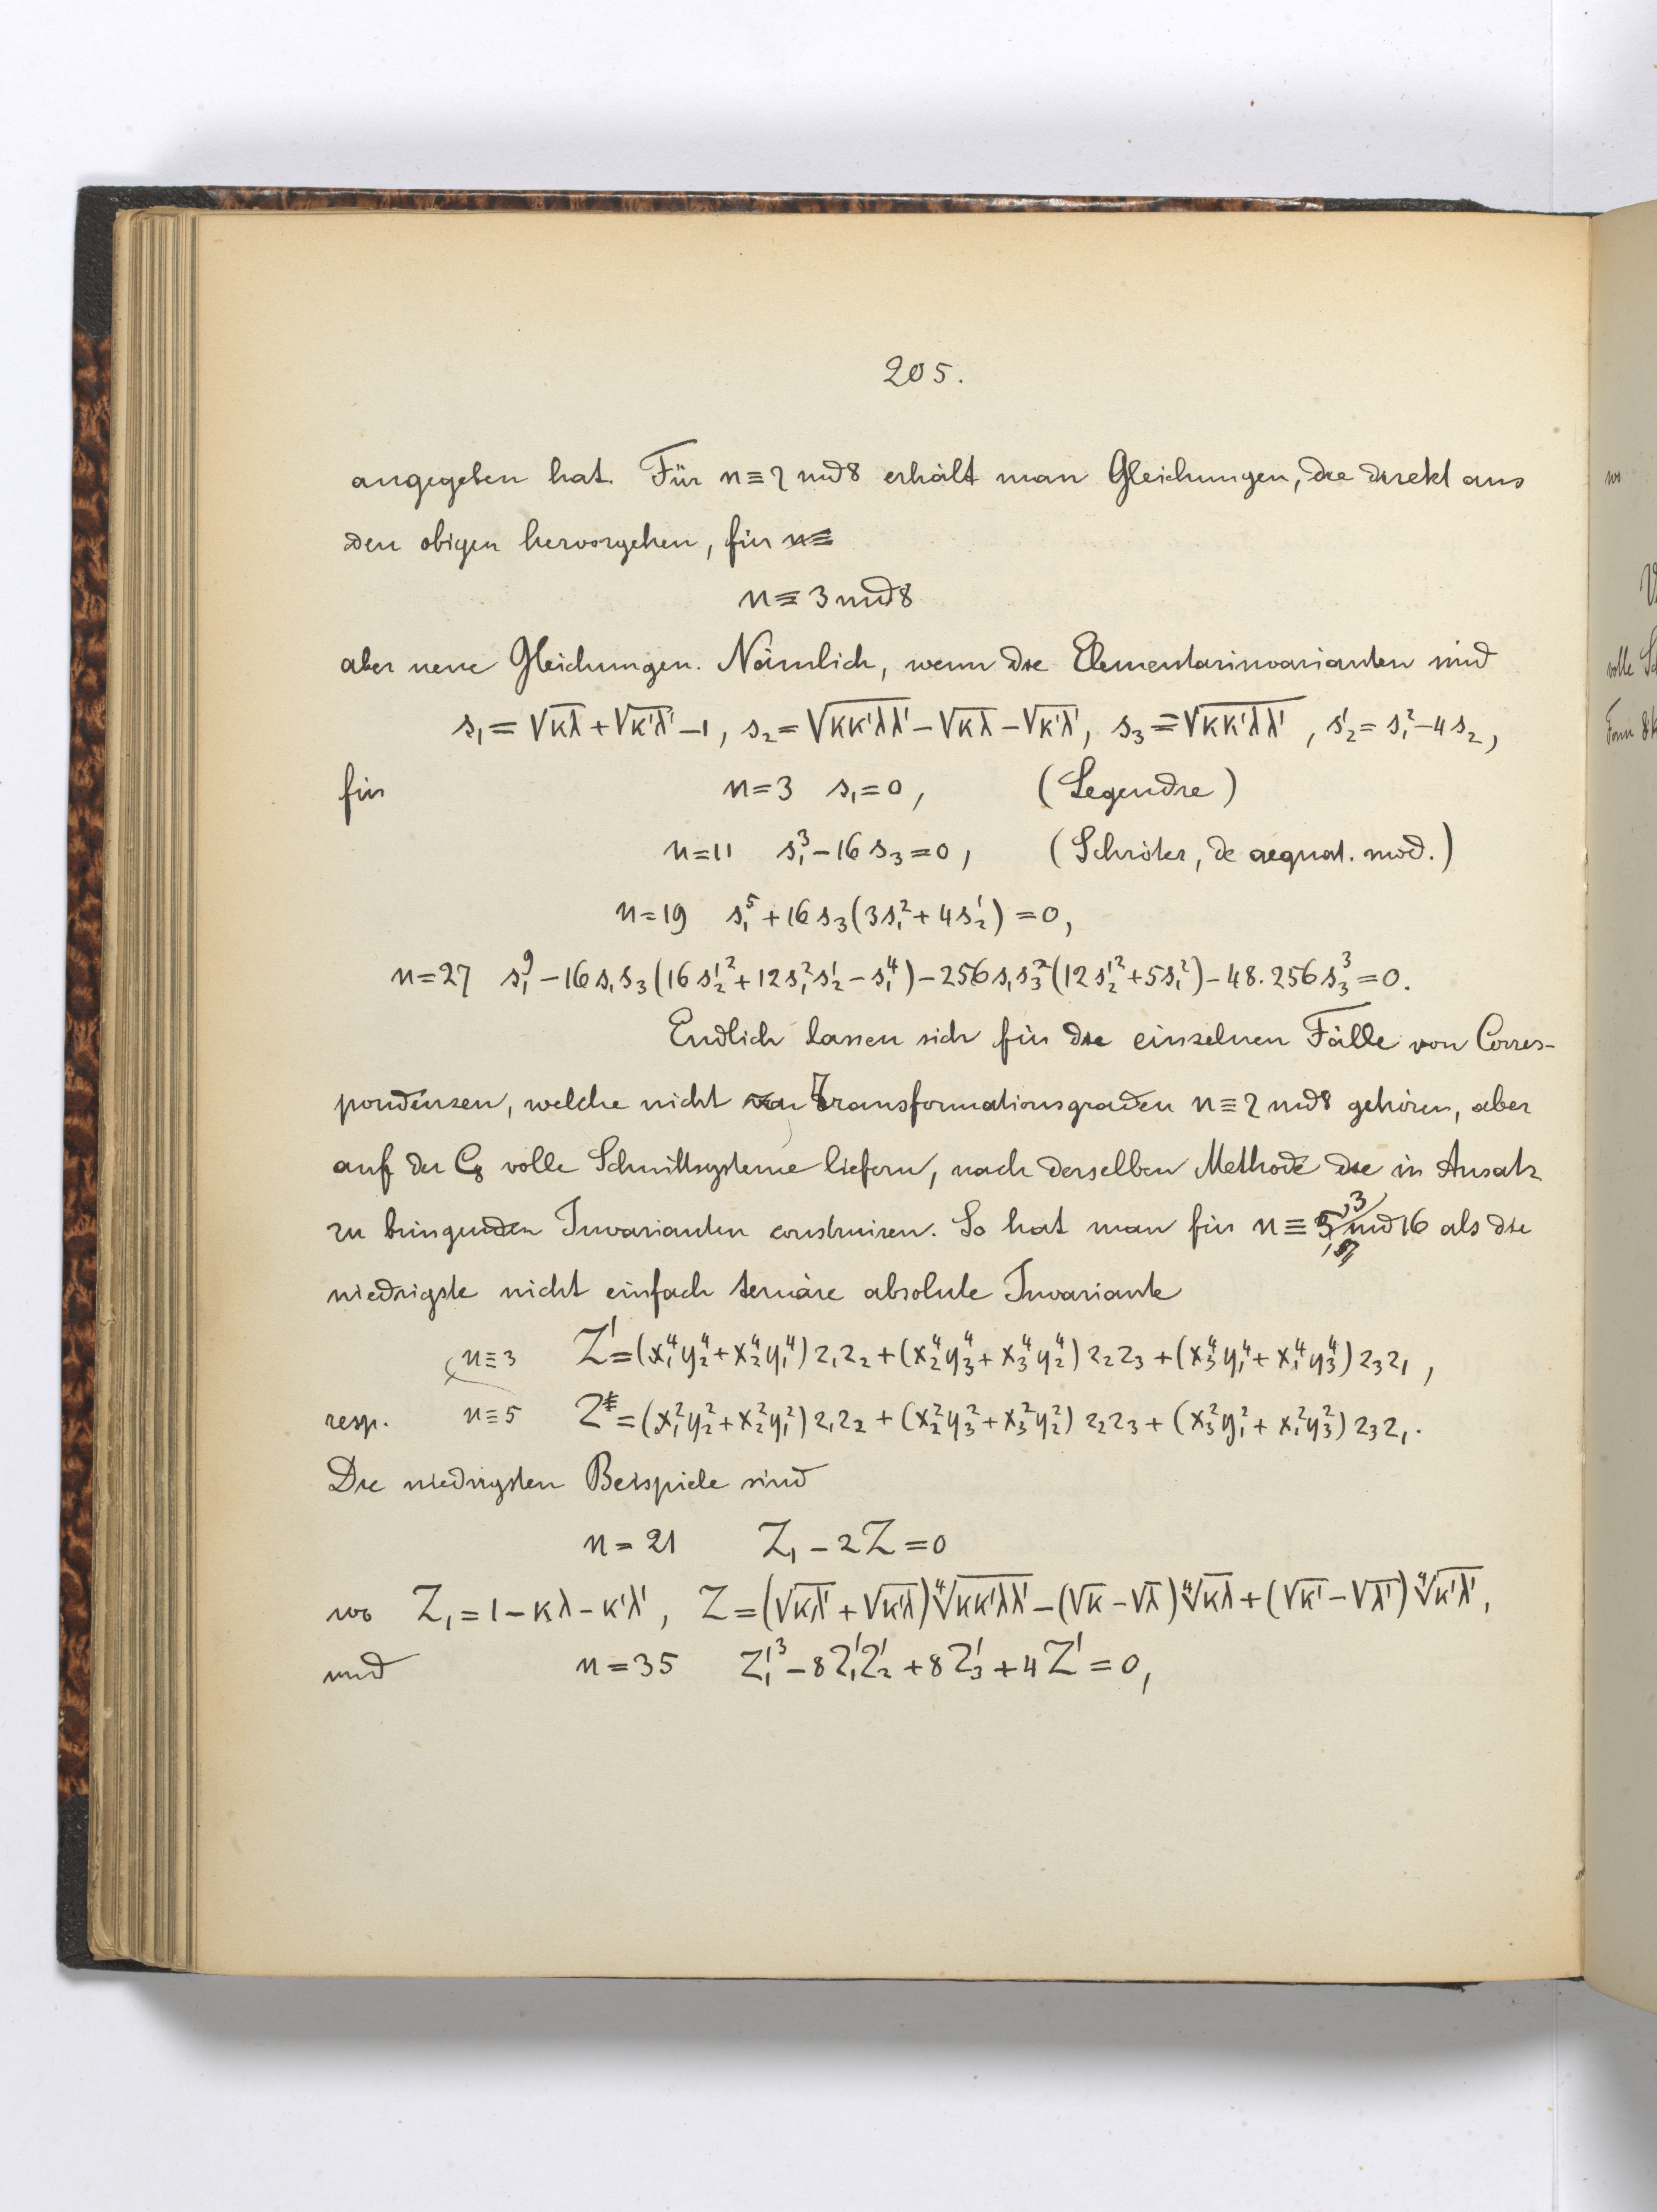 205.
angegeben hat. Für n≡7 mod 8 erhält man Gleichungen, die direkt aus
den obigen hervorgehen, für n≡
n≡3 mod 8
aber neue Gleichungen. Nämlich, wenn die Elementarinvarianten sind
s₁=√κλ+√κ'λ'−1, s₂=√κκ'λλ'−√κλ−√κ'λ', s₃=√κκ'λλ', s'₂=s₁²−4s₂,
für n=3 s₁=0, (Legendre)
n=11 s₁³−16s₃=0, (Schröter, de aequat. mod.)
n=19 s₁⁵+16s₃(3s₁²+4s'₂)=0,
n=27 s₁⁹−16s₁s₃(16s'₂²+12s₁²s'₂−s₁⁴)−256s₁s₃²(12s'₂²+5s₁²)−48.256s₃³=0.
Endlich lassen sich für die einzelnen Fälle von Corres-
pondenzen, welche nicht zu Transformationsgraden n≡7 mod 8 gehören, aber
auf der C₈ volle Schnittsysteme liefern, nach derselben Methode die in Ansatz
zu bringenden Invarianten construiren. So hat man für n≡ 3, 5 mod 16 als die
niedrigste nicht einfach ternäre absolute Invariante
n≡3 Z'=(x₁⁴y₂⁴+x₂⁴y₁⁴)z₁z₂+(x₂⁴y₃⁴+x₃⁴y₂⁴)z₂z₃+(x₃⁴y₁⁴+x₁⁴y₃⁴)z₃z₁,
resp. n≡5 Z=(x₁²y₂²+x₂²y₁²)z₁z₂+(x₂²y₃²+x₃²y₂²)z₂z₃+(x₃²y₁²+x₁²y₃²)z₃z₁.
Die niedrigsten Beispiele sind
n=21 Z₁−2Z=0
wo Z₁=1−κλ−κ'λ', Z=(√κλ'+√κ'λ)∜κκ'λλ'−(√κ−√λ)∜κλ+(√κ'−√λ')∜κ'λ',
und n=35 Z'₁³−8Z'₁Z'₂+8Z'₃+4Z'=0,
wo
volle